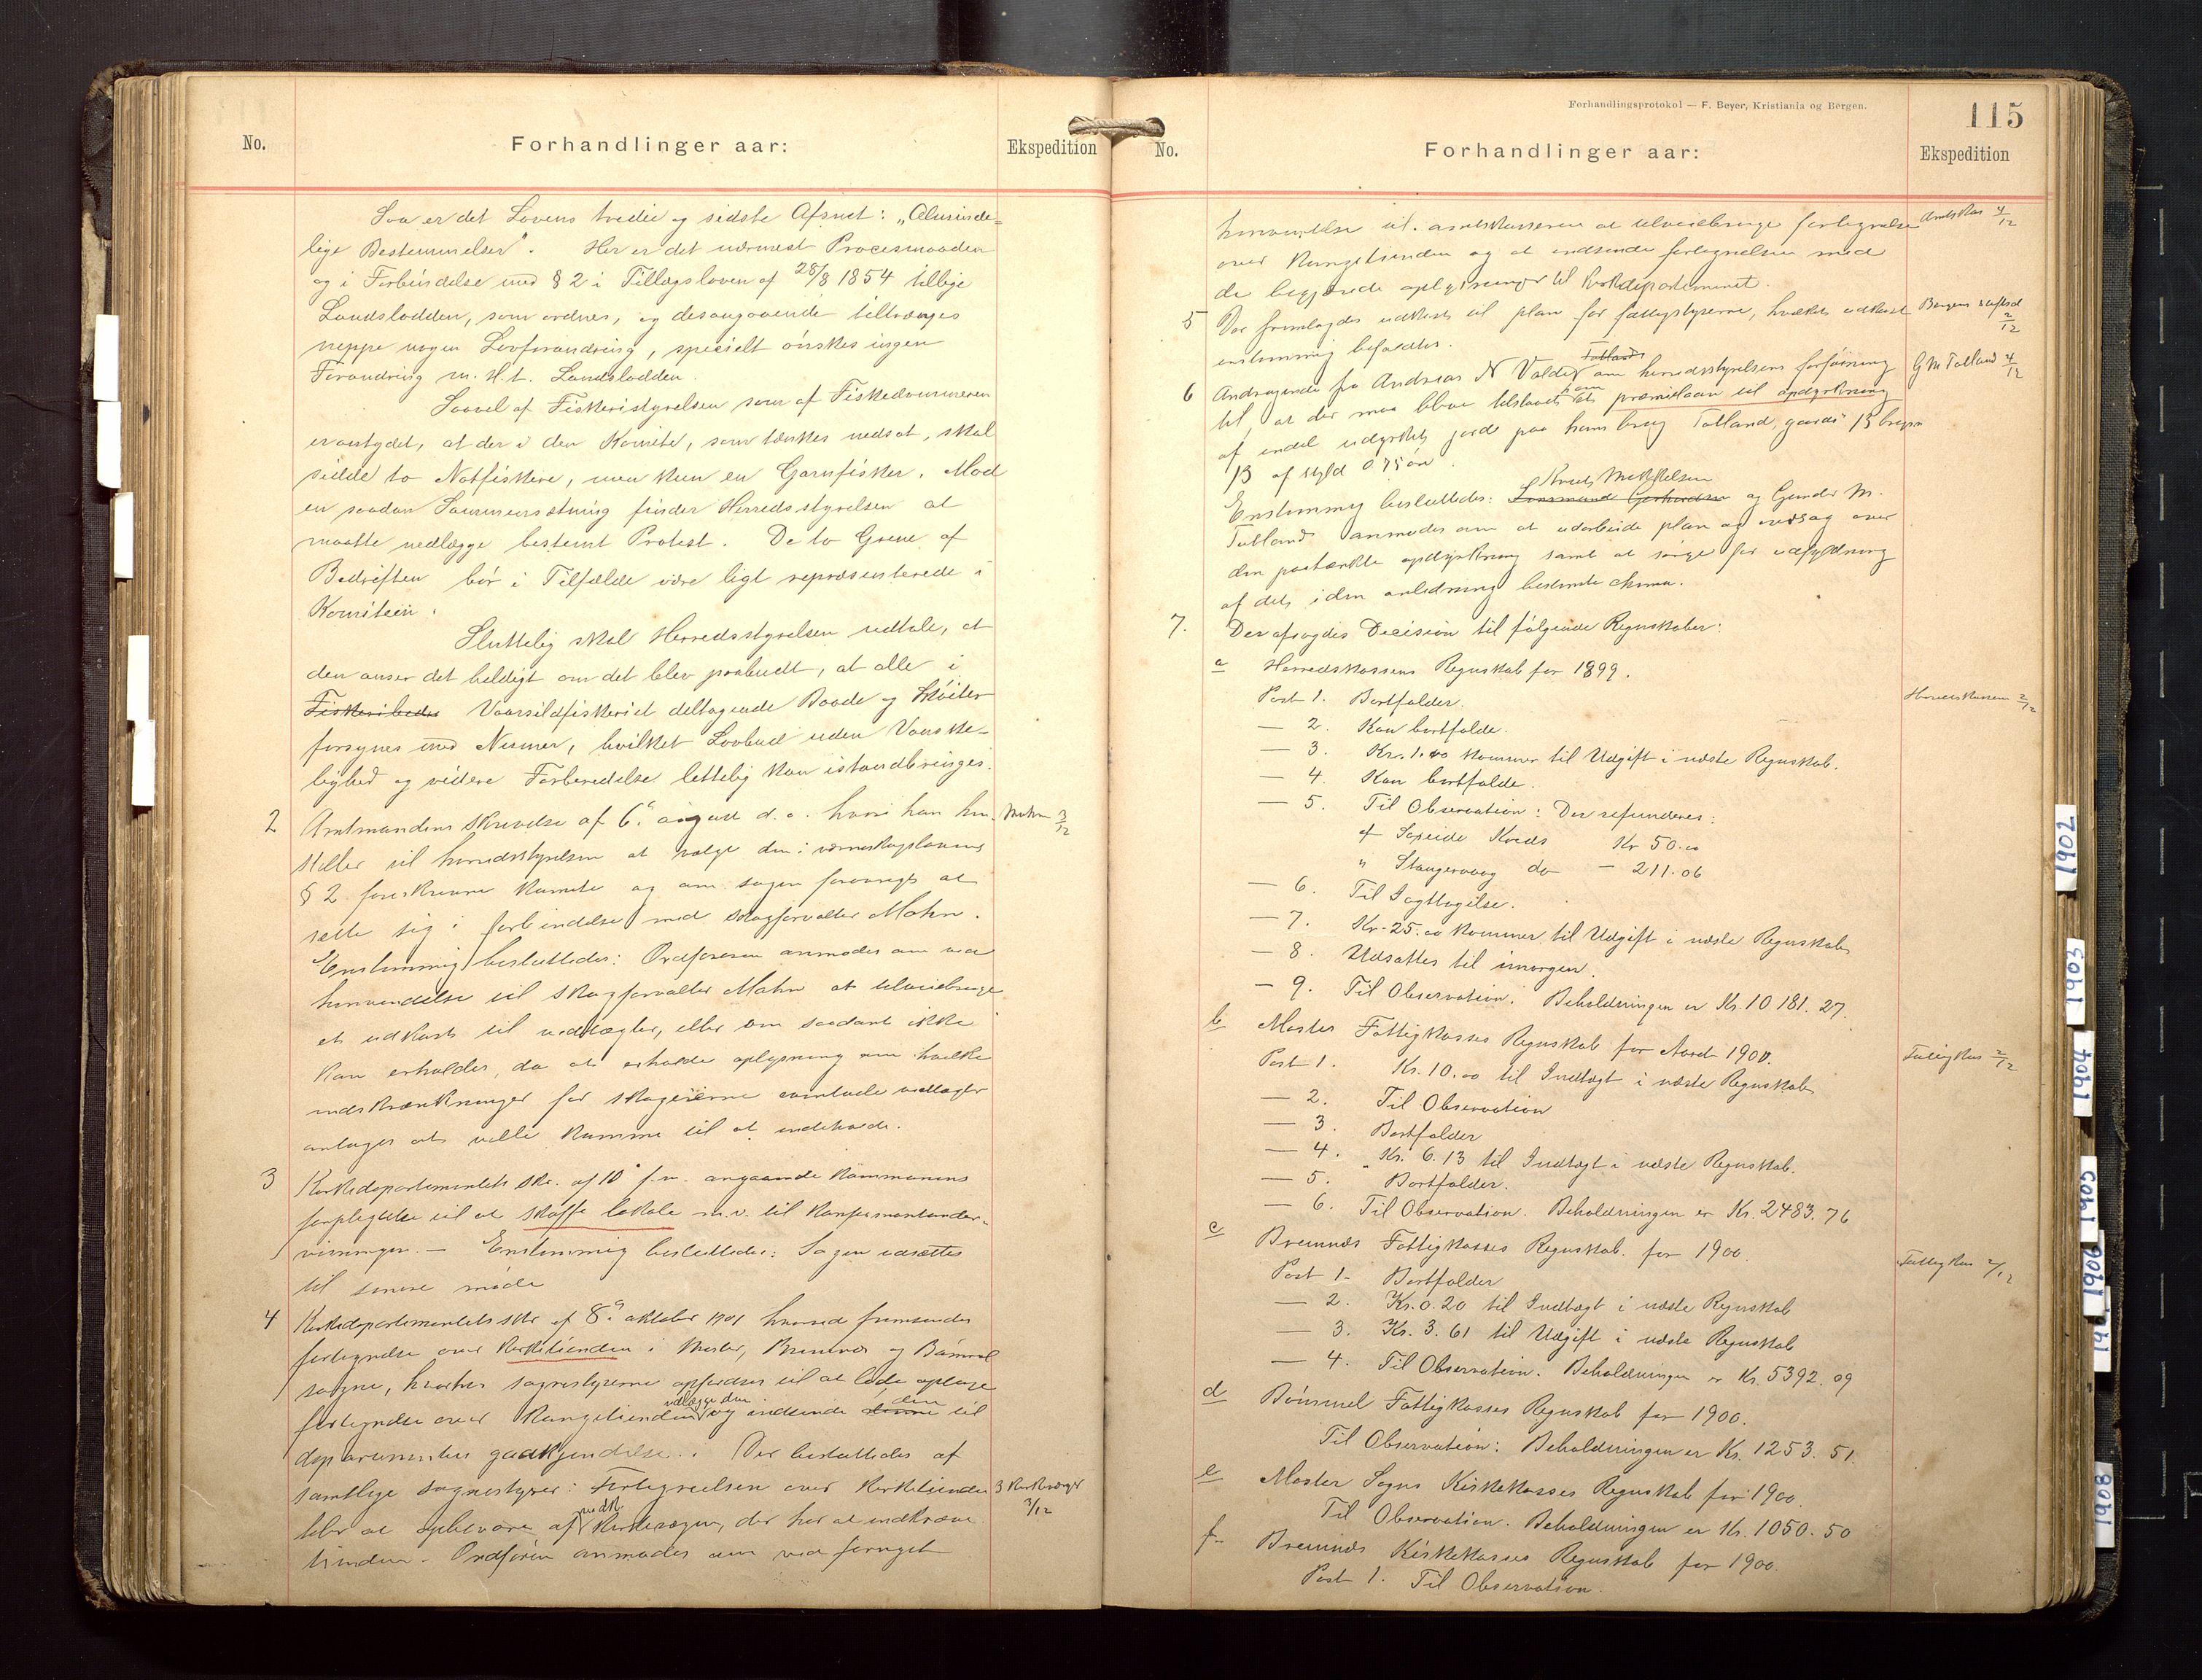 No.
Forhandlinger aar:
Ekspedition
Saa er det Lovens tredie og sidste Afsnit: „Alminde=
lige Bestemmelser". Her er det nærmest Procesmaaden
og i Forbindelse med § 2 i Tillægsloven af 28/8 1854 tillige
Landslodden, som ordnes, og desangaaende tiltrænges
neppe nogen Lovforandring, specielt ønskes ingen
Forandring m. H. t. Landslodden.
Saavel af Fiskeristyrelsen som af Fiskedommeren
er antydet, at der i den Komite, som tænkes nedsat, skal
sidde to Notfiskere, men kun en Garnfisker. Mod
en saadan Sammensætning finder Herredsstyrelsen at
maatte nedlægge bestemt Protest. De to Grene af
Bedriften bör i Tilfælde være ligt repræsenterede i
Komiteen.
Sluttelig skal Herredsstyrelsen udtale, at
den anser det heldigt om det blev paabudt, at alle i
Fiskeribedr Vaarsildfiskeriet deltagende Baade og Skøiter
forsynes med Numer, hvilket Lovbud uden Vanske-
lighed og videre Forberedelse lettelig kan istandbringes.
2 Amtmandens skrivelse af 6. august d. a. hvori han hen- Mohn 3/12
stiller til herredsstyrelsen at vælge den i værneskoglovens
§ 2 foreskrevne komite og om sagen forøvrigt at
sætte sig i forbindelse med skogforvalter Mohn.
Enstemmig besluttedes: Ordføreren anmodes om ved
henvendelse til skogforvalter Mohn at tilveiebringe
et udkast til vedtægter, eller om saadant ikke
kan erholdes, da at erholde oplysning om hvilke
indskrænkninger for skogeierne eventuele vedtægter
antages at ville komme til at indeholde.
3 Kirkedepartementets skr. af 10 f. m. angaaende kommunens
forpligtelse til at skaffe lokale m.v. til konfirmantunder-
visningen. — Enstemmig besluttedes: Sagen udsættes
til senere møde
4 Kirkedepartementets skr af 8. oktober 1901 hvorved fremsendes
fortegnelse over kirketienden i Moster, Bremnes og Bømmel
sogne, hvorhos sognestyrerne opfordres til at lade optage
fortegnelse over kongetienden vedlægge den og indsende denne den til
departementets godkjendelse. Der besluttedes af
samtlige sognestyrer: Fortegnelsen over kirketienden 3 Kirkeverger 3/12
blir at opbevare af vedk. kirkeverger, der har at indkræve
tienden. Ordføren anmodes om ved fornyet
Forhandlingsprotokol — F. Beyer, Kristiania og Bergen.
115
No.
Forhandlinger aar:
Ekspedition
henvendelse til amtskasseren at tilveiebringe fortegnelse Amtskas 4/12
over kongetienden og at indsende fortegnelsen med
de begjærede oplysninger til kirkedepartementet.
5 Der fremlagdes udkast til plan for fattigstyrerne, hvilket udkast Bergens stiftsd 2/12
enstemmig besluttes.
6 Andragende fra Andreas N Valde Totland om herredsstyrelsens forføining G M Totland 4/12
til, at der maa blive tilstaaet ham et præmielaan til opdyrkning
af endel udyrket jord paa hans brug Totland, gaards 13 brugsn
13 af skyld 0.75 øre.
Enstemmig besluttedes: Lensmand Gerhardsen Knut Mikkelsen og Gunder M.
Totland anmodes om at udarbeide plan og overslag over
den paatænkte opdyrkning samt at sørge for udfyldning
af det i den anledning bestemte skema.
7. Der afsagdes Decision til følgende Regnskaber:
a Herredskassens Regnskab for 1899.
Post 1. Bortfalder. Herredskassen 2/12
— 2. Kan bortfalde.
— 3. Kr. 1.40 kommer til Udgift i næste Regnskab.
— 4. Kan bortfalde.
— 5. Til Observation: Der refunderes:
af Speide Kreds Kr 50.00
" Stangervaag do — 211.06
— 6. Til Iagttagelse.
— 7. Kr. 25.00 kommer til Udgift i næste Regnskab
— 8. Udsættes til imorgen.
— 9. Til Observation. Beholdningen er Kr. 10 181.27.
b Moster Fattigkasses Regnskab for Aaret 1900. Fattigkas 2/12
Post 1. Kr. 10.00 til Indtægt i næste Regnskab
— 2. Til Observation
— 3. Bortfalder
— 4. Kr. 6.13 til Indtægt i næste Regnskab.
— 5. Bortfalder.
— 6. Til Observation. Beholdningen er Kr. 2483.76
c Bremnes Fattigkasses Regnskab for 1900 Fattigkas 2/12
Post 1. Bortfalder
— 2. Kr. 0.20 til Indtægt i næste Regnskab
— 3. Kr. 3.61 til Udgift i næste Regnskab
— 4. Til Observation. Beholdningen er Kr. 5392.09
d Bömmel Fattigkasses Regnskab for 1900.
Til Observation: Beholdningen er Kr. 1253.51.
e Moster Sogns Kirkekasses Regnskab for 1900.
Til Observation. Beholdningen er Kr. 1050.50
f. Bremnes Kirkekasses Regnskab for 1900.
Post 1. Til Observation.
1902
1903
1904
1905
1906
190
1908